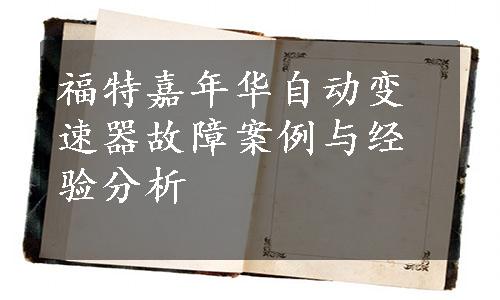 福特嘉年华自动变
速器故障案例与经
验分析